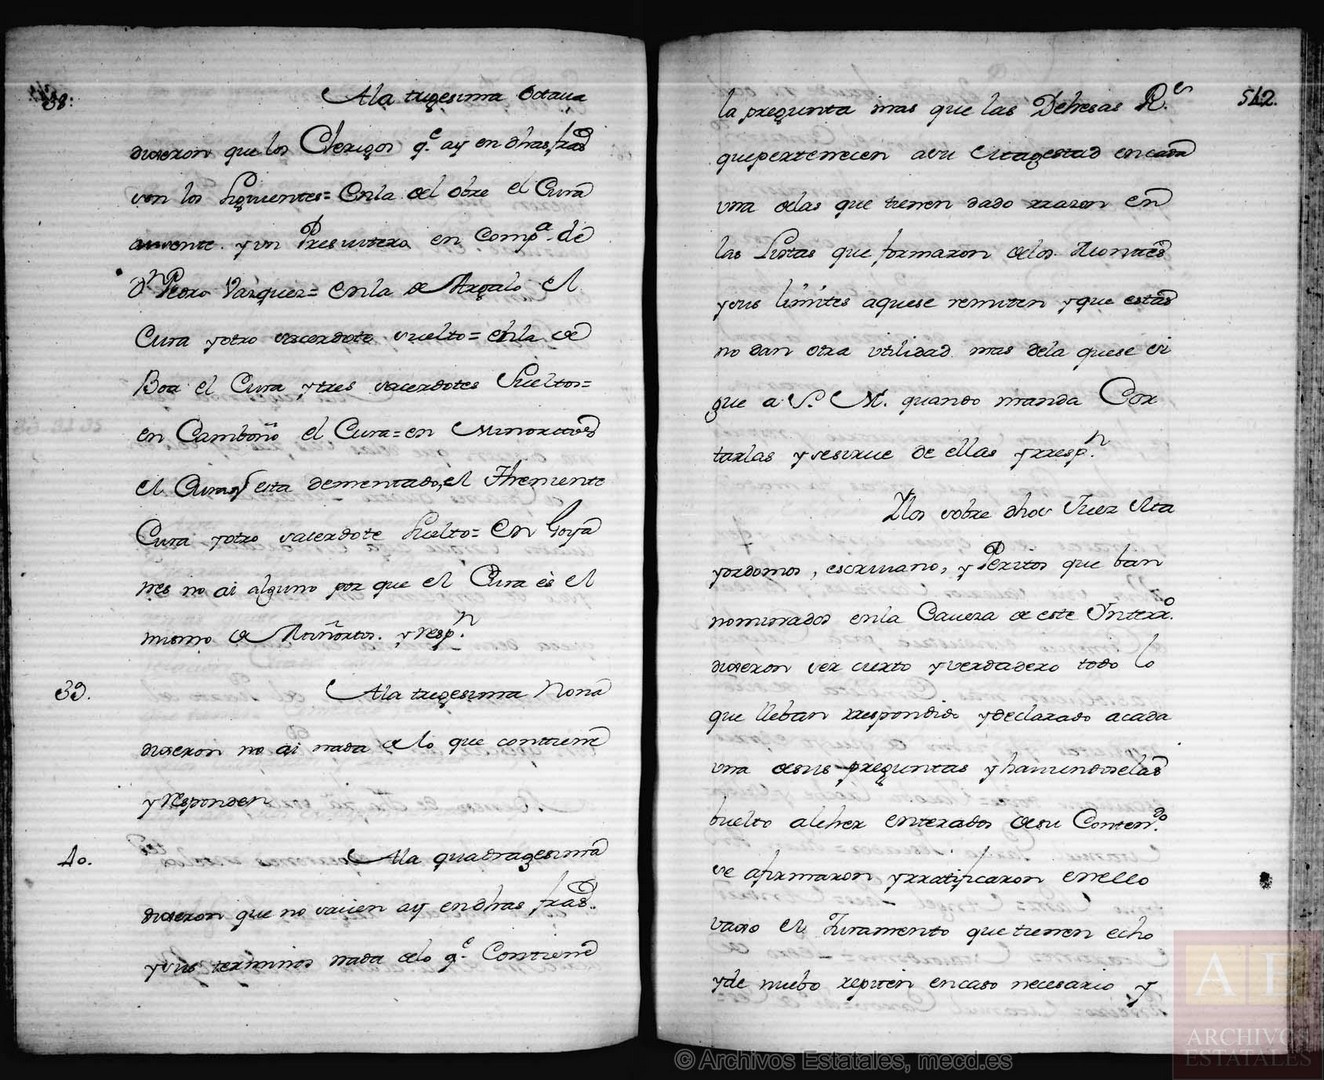 38.
A la trigesima Octaua
dixeron que los Clerigos q.e ay en dhas frãs
son los siguientes= En la del Obre el Cura
auzente y un Presuitero en Comp.a de
D.n Pedro Vazquez= en la de Argalo el
Cura y otro sacerdote suelto= en la de
Boa el Cura y tres sacerdotes sueltos=
en Camboño el Cura= en
el Cura q esta dementado, el Theniente
Cura y otro sacerdote suelto= en Goya
nes no ai alguno por que el Cura es el
mismo de y resp.n
39.
A la trigesima Nona
dixeron no ai nada de lo que contiene
y responden
40.
A la quadragesima
dixeron que no sauen ay en dhas frãs.
y sus terminos nada de lo q.e Contiene
542.
la pregunta mas que las Dehesas R.s
que pertenecen a su Magestad en cada
una de las que tienen dado rrazon en
las Listas que formaron de los Montes
y sus limites a que se remiten y que estas
no dan otra utilidad mas de la que se si
gue a S. M. quando manda Cor
tarlas y se sirue de ellas y rresp.n
Y los sobre dhos Juez Ma
yordomos, escriuano, y Peritos que ban
nominados en la Caueza de este Ynterr.o
dixeron ser cierto y verdadero todo lo
que lleban rrespondido y declarado a cada
una de sus preguntas y hauiendoselas
buelto a leher enterados de su Conten.do
se afirmaron y rratificaron en ello
vajo el Juramento que tienen echo
y de nuebo repiten en caso necesario y
© Archivos Estatales, mecd.es
AE
ARCHIVOS
ESTATALES